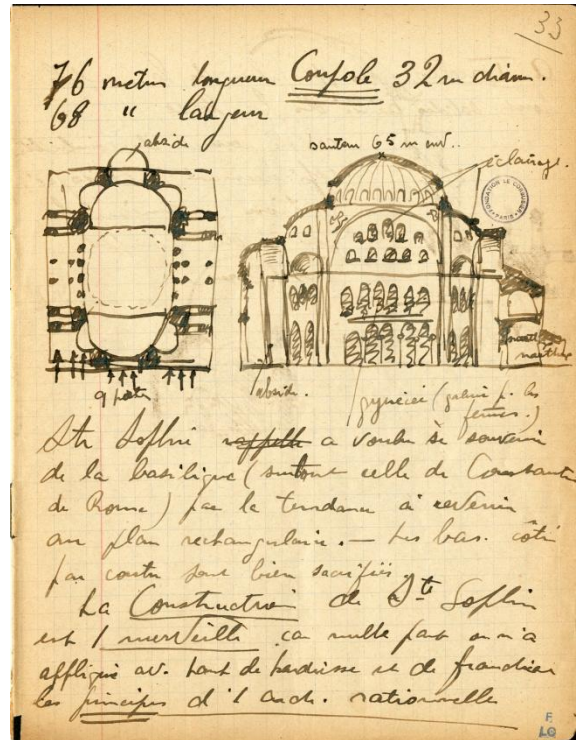 33
76 metres longueur Coupole 32 m diam.
68 " largeur
abside
hauteur 65 m env..
éclairage.
FONDATION LE CORBUSIER
9 portes
abside.
narthex
gynécée (galerie p. les
femmes.)
Ste Sophie rappelle a voulu se souvenir
de la basilique (surtout celle de Constantin
de Rome) par la tendance à revenir
au plan rectangulaire. — Les bas. côtés
par contre sont bien sacrifiés
La Construction de Ste Sophie
est 1 merveille car nulle part on n'a
appliqué av. tant de hardiesse et de franchise
les principes d'1 arch. rationnelle
F.
LC